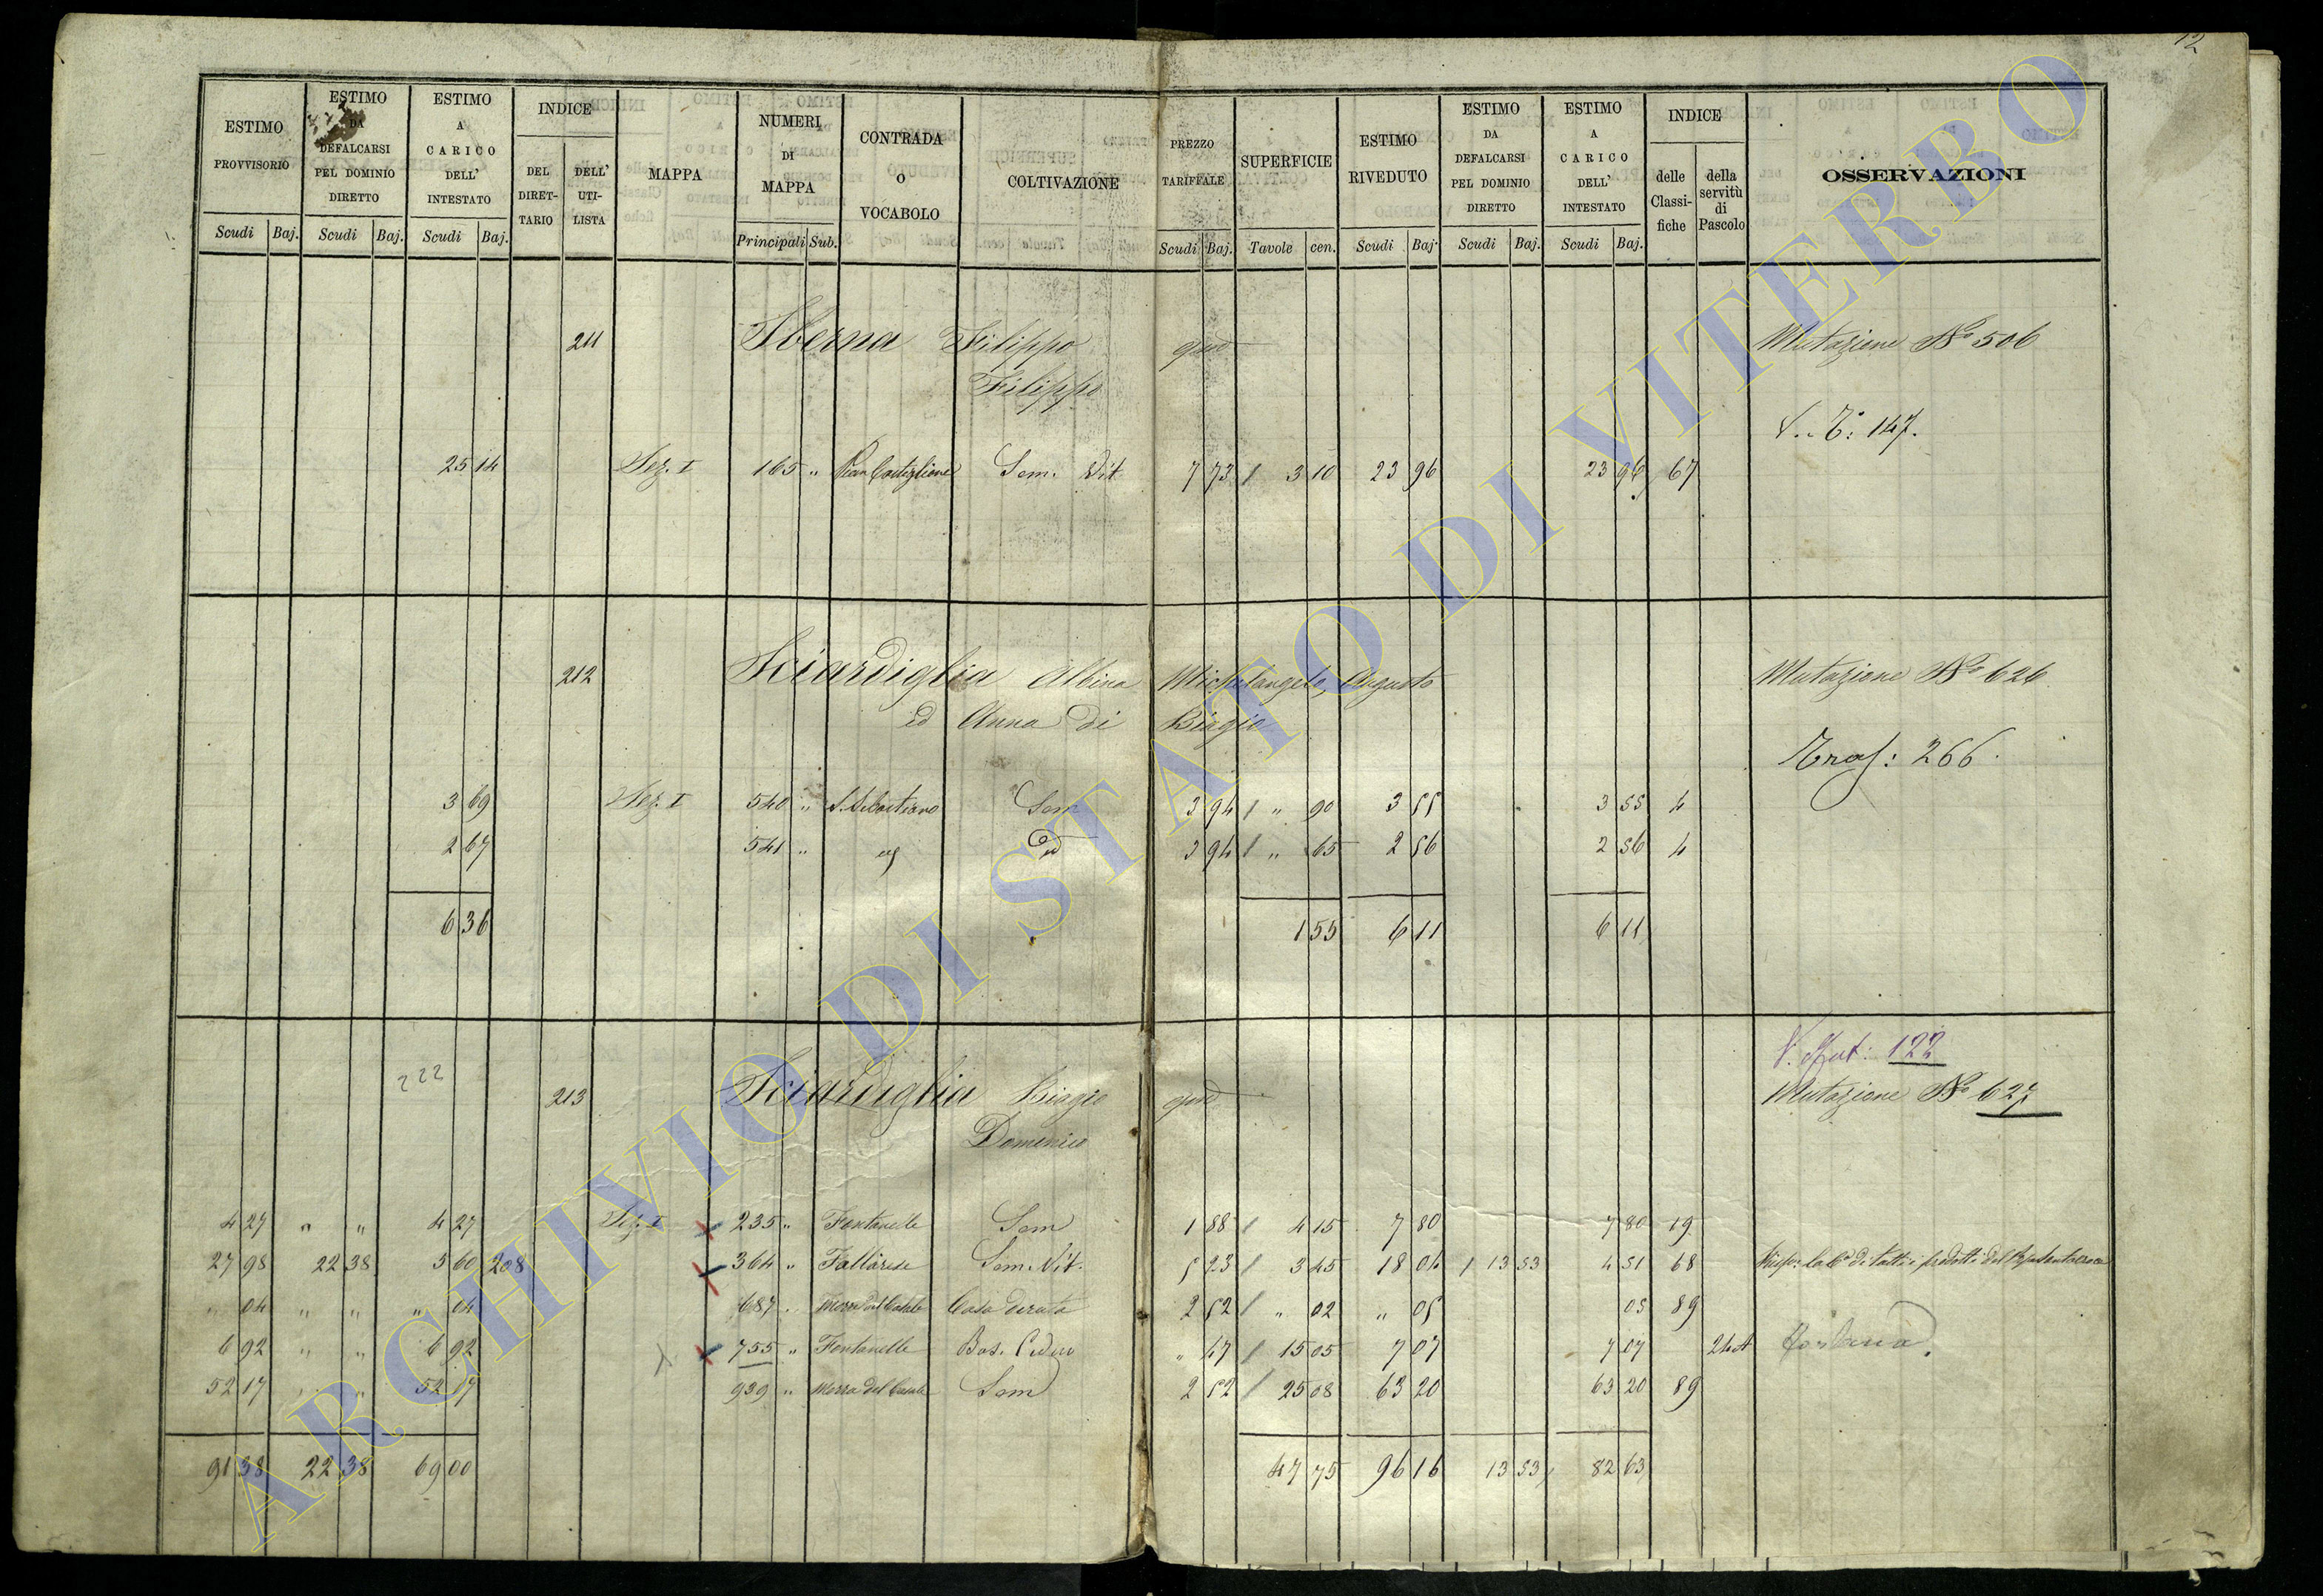 12
ESTIMO PROVVISORIO Scudi Baj. ESTIMO DA DEFALCARSI PEL DOMINIO DIRETTO Scudi Baj. ESTIMO A CARICO DELL' INTESTATO Scudi Baj. INDICE DEL DIRETTARIO DELL' UTILISTA MAPPA NUMERI DI MAPPA Principali Sub. CONTRADA O VOCABOLO COLTIVAZIONE PREZZO TARIFFALE Scudi Baj. SUPERFICIE Tavole cen. ESTIMO RIVEDUTO Scudi Baj. ESTIMO DA DEFALCARSI PEL DOMINIO DIRETTO Scudi Baj. ESTIMO A CARICO DELL' INTESTATO Scudi Baj. INDICE delle Classifiche della servitù di Pascolo OSSERVAZIONI
211 Sberna Filippo qm Mutazione No 506
Filippo
V. T: 147.
25 14 Sez. I 165 " Pian Castiglione Sem. Vit 7 73 3 10 23 96 23 96 67
212 Sciardiglia Albina Michelangelo, Augusto Mutazione No 626
ed Anna di Biagio
Trasf: 266.
3 69 Sez. I 540 " S. Sebastiano Sem 3 94 " 90 3 55 3 55 4
2 67 541 " " 3 94 " 65 2 56 2 56 4
6 36 1 55 6 11 6 11
V. Mut: 122
222 213 Sciardiglia Biagio qm Mutazione No 627
Domenico
4 27 " " 4 27 Sez. I 235 " Fontanelle Sem 1 88 4 15 7 80 7 80 19
27 98 22 38 5 60 208 364 " Fallarese Sem. Vit. 5 23 3 45 18 04 13 53 4 51 68
" 04 " " " 04 687 " Morra del Casale Casa diruta 2 52 " 02 " 05 05 89
6 92 " " 6 92 755 " Fontanelle Bos. Ceduo " 47 15 05 7 07 7 07 24A
52 17 " " 52 17 939 " Morra del Casale Sem 2 52 25 08 63 20 63 20 89
91 38 22 38 69 00 47 75 96 16 13 53 82 63
ARCHIVIO DI STATO DI VITERBO